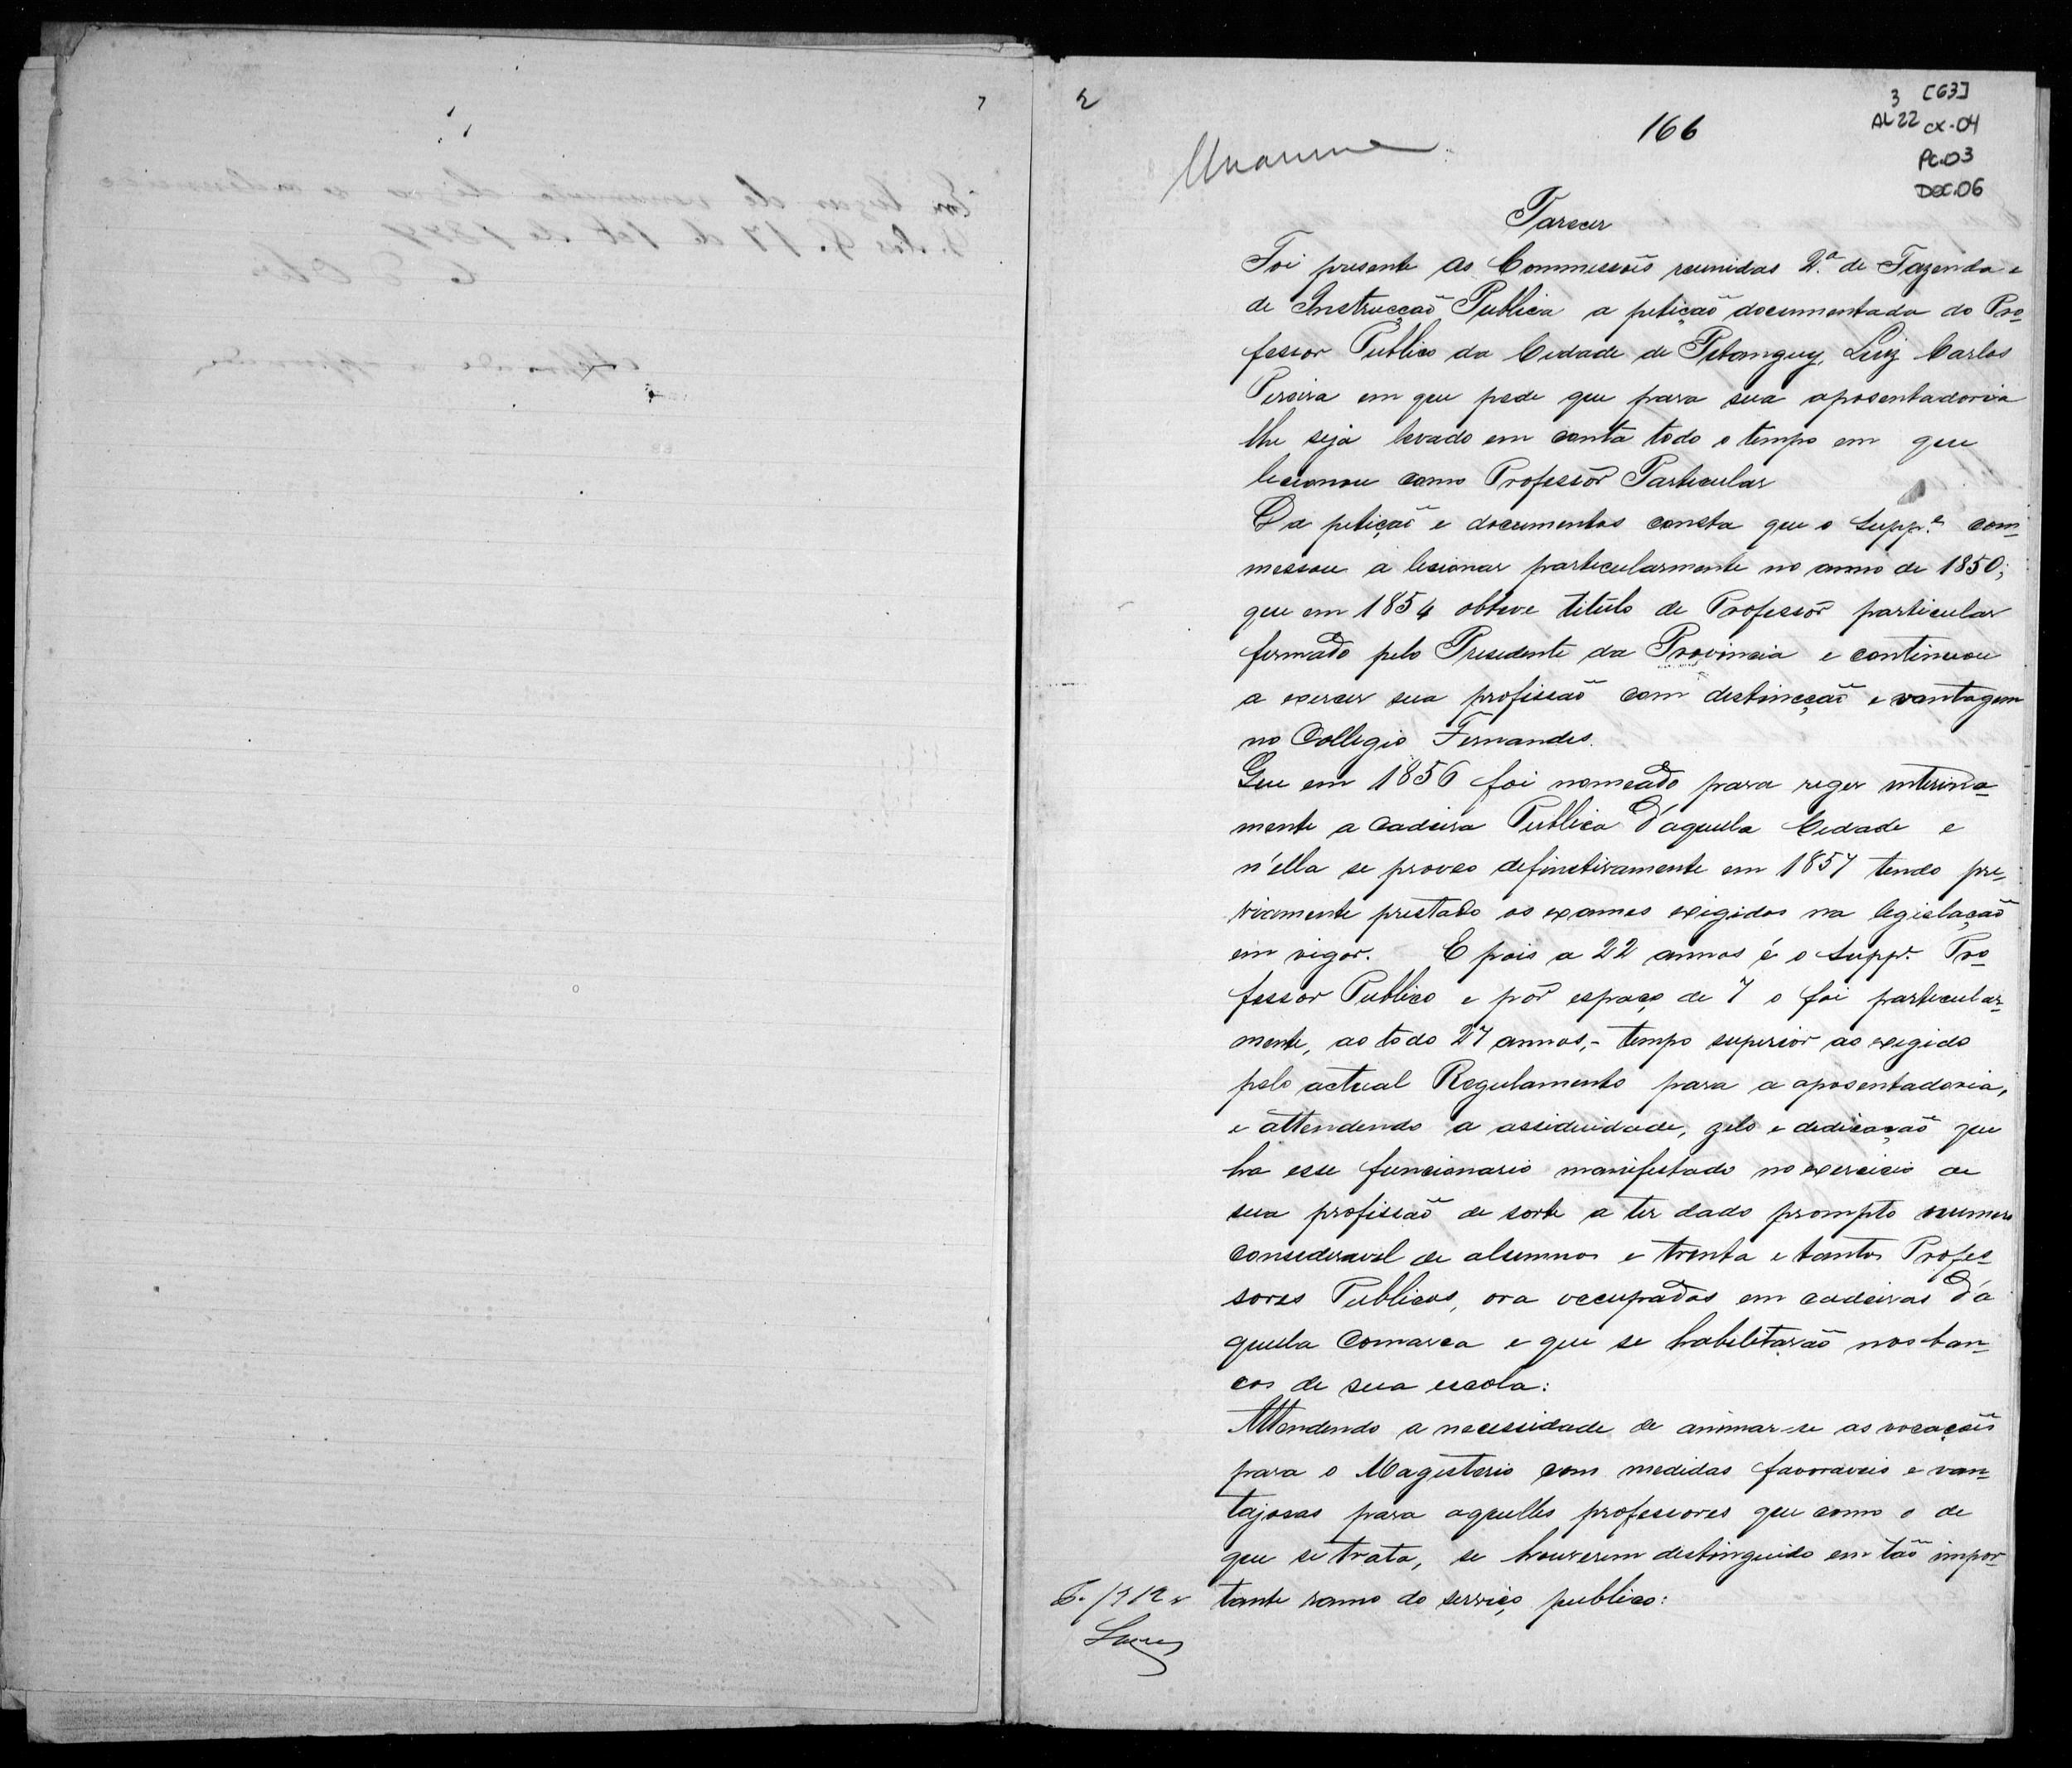 2
3 [63]
166
AL22 cx-04
PC.03
Doc.06
Unanime
Parecer
Foi presente as Commessoẽs reunidas 2.ª de Fazenda e
de Instrucçaõ Publica a petiçaõ documentada do Pro-
fessor Publico da Cidade de Pitanguy, Luiz Carlos
Pereira em que pede que para sua aposentadoria
lhe seja levado em conta todo o tempo em que
lecionou como Professor Particular
Da petiçaõ e documentos consta que o Supp.e com-
messou a lecionar particularmente no anno de 1850;
que em 1854 obteve titulo de Professor particular
firmado pelo Presidente da Provincia e continuou
a exercer sua profissaõ com destincçaõ e vantagem
no Collegio Fernandes.
Que em 1856 foi nomeado para reger interina-
mente a Cadeira Publica d'aquella Cidade e
n'ella se proveo definetivamente em 1857 tendo pre-
viamente prestado os exames exigidos na legislaçaõ
em vigor. E pois a 22 annos é o Supp.e Pro-
fessor Publico e por espaço de 7 o foi particular-
mente, ao todo 27 annos,- tempo superior ao exigido
pelo actual Regulamento para a aposentadoria,
e attendendo a assiduidade, zelo e dedicaçaõ que
ha esse funcionario manifestado no exercicio de
sua profissaõ de sorte a ter dado prompto numero
consideravel de alumnos e trinta e tantos Profes-
sores Publicos, ora occupados em cadeiras d'a
quella Comarca e que se habilitaraõ nos ban-
cos de sua escola:
Attendendo a necessidade de animar-se as vocaçoẽs
para o Magisterio com medidas favoraveis e van-
tajosas para aquelles professores que como o de
que se trata, se houverem destinguido em taõ impor-
tante ramo do serviço publico: